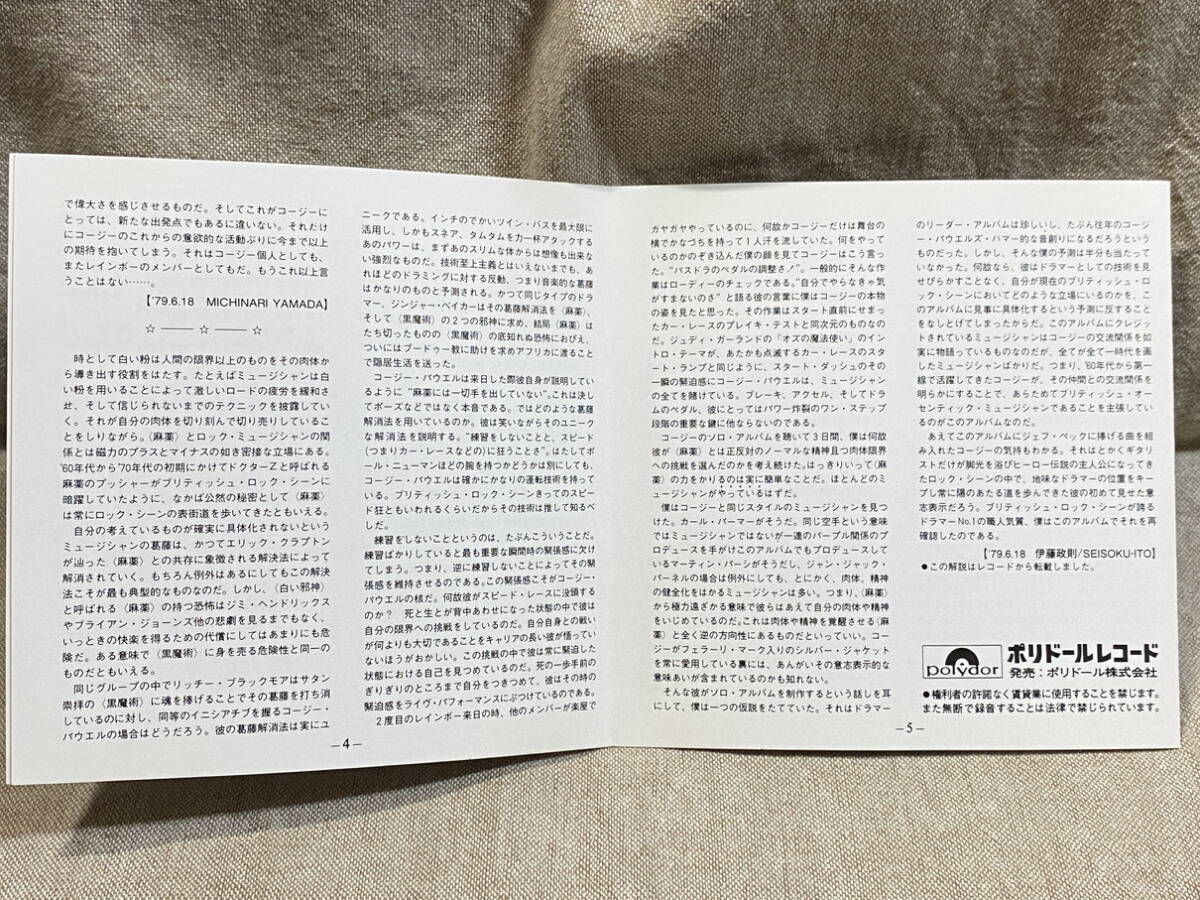 で偉大さを感じさせるものだ。そしてこれがコージーに
とっては、新たな出発点でもあるに違いない。それだけ
にコージーのこれからの意欲的な活動ぶりに今まで以上
の期待を抱いてしまう。それはコージー個人としても、
またレインボーのメンバーとしてもだ。もうこれ以上言
うことはない……。
【'79.6.18 MICHINARI YAMADA】
☆――☆――☆
時として白い粉は人間の限界以上のものをその肉体か
ら導き出す役割をはたす。たとえばミュージシャンは白
い粉を用いることによって激しいロードの疲労を緩和さ
せ、そして信じられないまでのテクニックを披露してい
く。それが自分の肉体を切り刻んで切り売りしているこ
とをしりながら。〈麻薬〉とロック・ミュージシャンの関
係とは磁力のプラスとマイナスの如き密接な立場にある。
'60年代から'70年代の初期にかけてドクターZと呼ばれる
麻薬のプッシャーがブリティッシュ・ロック・シーンに
暗躍していたように、なかば公然の秘密として〈麻薬〉
は常にロック・シーンの表街道を歩いてきたともいえる。
自分の考えているものが確実に具体化されないという
ミュージシャンの葛藤は、かつてエリック・クラプトン
が辿った〈麻薬〉との共存に象徴される解決法によって
解消されていく。もちろん例外はあるにしてもこの解決
法こそが最も典型的なものなのだ。しかし、〈白い邪神〉
と呼ばれる〈麻薬〉の持つ恐怖はジミ・ヘンドリックス
やブライアン・ジョーンズ他の悲劇を見るまでもなく、
いっときの快楽を得るための代償にしてはあまりにも危
険だ。ある意味で〈黒魔術〉に身を売る危険性と同一の
ものだともいえる。
同じグループの中でリッチー・ブラックモアはサタン
崇拝の〈黒魔術〉に魂を捧げることでその葛藤を打ち消
しているのに対し、同等のイニシアチブを握るコージー・
パウエルの場合はどうだろう。彼の葛藤解消法は実にユ
ニークである。インチのでかいツイン・バスを最大限に
活用し、しかもスネア、タムタムを力一杯アタックする
あのパワーは、まずあのスリムな体からは想像も出来な
い強烈なものだ。技術至上主義とはいえないまでも、あ
れほどのドラミングに対する反動、つまり音楽的な葛藤
はかなりのものと予測される。かつて同じタイプのドラ
マー、ジンジャー・ベイカーはその葛藤解消法を〈麻薬〉、
そして〈黒魔術〉の２つの邪神に求め、結局〈麻薬〉は
たち切ったものの〈黒魔術〉の底知れぬ恐怖におびえ、
ついにはブードゥー教に助けを求めアフリカに渡ること
で隠居生活を送った。
コージー・パウエルは来日した際彼自身が説明してい
るように“麻薬には一切手を出していない”。これは決し
てポーズなどではなく本音である。ではどのような葛藤
解消法を用いているのか。彼は笑いながらそのユニーク
な解消法を説明する。“練習をしないことと、スピード
(つまりカー・レースなどの)に狂うことさ”。はたしてポ
ール・ニューマンほどの腕を持つかどうかは別にしても、
コージー・パウエルは確かにかなりの運転技術を持って
いる。ブリティッシュ・ロック・シーンきってのスピー
ド狂ともいわれるくらいだからその技術は推して知るべ
しだ。
練習をしないことというのは、たぶんこういうことだ。
練習ばかりしていると最も重要な瞬間時の緊張感に欠け
てしまう。つまり、逆に練習しないことによってその緊
張感を維持させるのである。この緊張感こそがコージー・
パウエルの核だ。何故彼がスピード・レースに没頭する
のか？　死と生とが背中あわせになった状態の中で彼は
自分の限界への挑戦をしているのだ。自分自身との戦い
が何よりも大切であることをキャリアの長い彼が悟ってい
ないほうがおかしい。この挑戦の中で彼は常に緊迫した
状態における自己を見つめているのだ。死の一歩手前の
ぎりぎりのところまで自分をつきつめて、彼はその時の
緊迫感をライヴ・パフォーマンスにぶつけているのである。
２度目のレインボー来日の時、他のメンバーが楽屋で
－4－
ガヤガヤやっているのに、何故かコージーだけは舞台の
横でかなづちを持って１人汗を流していた。何をやって
いるのかのぞき込んだ僕の顔を見てコージーはこう言っ
た。“バスドラのペダルの調整さ！”。一般的にそんな作
業はローディーのチェックである。“自分でやらなきゃ気
がすまないのさ”と語る彼の言葉に僕はコージーの本物
の姿を見たと思った。その作業はスタート直前にせまっ
たカー・レースのブレイキ・テストと同次元のものなの
だ。ジュディ・ガーランドの「オズの魔法使い」のイン
トロ・テーマが、あたかも点滅するカー・レースのスタ
ート・ランプと同じように、スタート・ダッシュのその
一瞬の緊迫感にコージー・パウエルは、ミュージシャン
の全てを賭けている。ブレーキ、アクセル、そしてドラ
ムのペダル、彼にとってはパワー炸裂のワン・ステップ
段階の重要な鍵に他ならないのである。
コージーのソロ・アルバムを聴いて３日間、僕は何故
彼が〈麻薬〉とは正反対のノーマルな精神且つ肉体限界
への挑戦を選んだのかを考え続けた。はっきりいって〈麻
薬〉の力をかりるのは実に簡単なことだ。ほとんどのミ
ュージシャンがやっているはずだ。
僕はコージーと同じスタイルのミュージシャンを見つ
けた。カール・パーマーがそうだ。同じ空手という意味
ではミュージシャンではないが一連のパープル関係のプ
ロデュースを手がけこのアルバムでもプロデュースして
いるマーティン・バーシがそうだし、ジャン・ジャック・
バーネルの場合は例外にしても、とにかく、肉体、精神
の健全化をはかるミュージシャンは多い。つまり、〈麻薬〉
から極力遠ざかる意味で彼らはあえて自分の肉体や精神
をいじめているのだ。これは肉体や精神を覚醒させる〈麻
薬〉と全く逆の方向性にあるものだといっていい。コー
ジーがフェラーリ・マーク入りのシルバー・ジャケット
を常に愛用している裏には、あんがいその意志表示的な
意味あいが含まれているのかも知れない。
そんな彼がソロ・アルバムを制作するという話しを耳
にして、僕は一つの仮説をたてていた。それはドラマー
のリーダー・アルバムは珍しいし、たぶん往年のコージ
ー・パウエルズ・ハマー的な音創りになるだろうという
ものだった。しかし、そんな僕の予測は半分も当たって
いなかった。何故なら、彼はドラマーとしての技術を見
せびらかすことなく、自分が現在のブリティッシュ・ロ
ック・シーンにおいてどのような立場にいるのかを、こ
のアルバムに見事に具体化するという予測に反すること
をなしとげてしまったからだ。このアルバムにクレジッ
トされているミュージシャンはコージーの交流関係を如
実に物語っているものなのだが、全てが全て一時代を画
したミュージシャンばかりだ。つまり、'60年代から第一
線で活躍してきたコージーが、その仲間との交流関係を
明らかにすることで、あらためてブリティッシュ・オー
センティック・ミュージシャンであることを主張してい
るのがこのアルバムなのだ。
あえてこのアルバムにジェフ・ベックに捧げる曲を組
み入れたコージーの気持もわかる。それはとかくギタリ
ストだけが脚光を浴びヒーロー伝説の主人公になってき
たロック・シーンの中で、地味なドラマーの位置をキー
プし常に陽のあたる道を歩んできた彼の初めて見せた意
志表示だろう。ブリティッシュ・ロック・シーンが誇る
ドラマーNo.1の職人気質、僕はこのアルバムでそれを再
確認したのである。
【'79.6.18 伊藤政則/SEISOKU-ITO】
●この解説はレコードから転載しました。
polydor
ポリドールレコード
発売：ポリドール株式会社
●権利者の許諾なく賃貸業に使用することを禁じます。
また無断で録音することは法律で禁じられています。
－5－